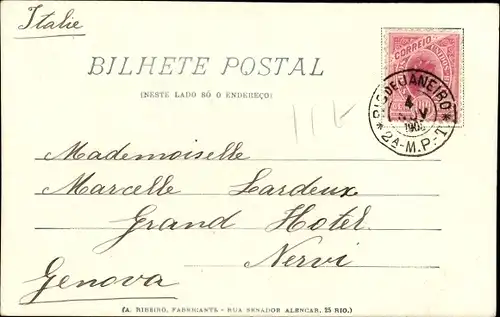 Italie
CORREIO
BILHETE POSTAL
(NESTE LADO SÓ O ENDEREÇO)
RIO DE JANEIRO
4
NOV
* 2A-M.P.-T *
Mademoiselle
Marcelle Lardeux
Grand Hotel
Nervi
Genova
(A. RIBEIRO, FABRICANTE - RUA SENADOR ALENCAR, 25 RIO.)